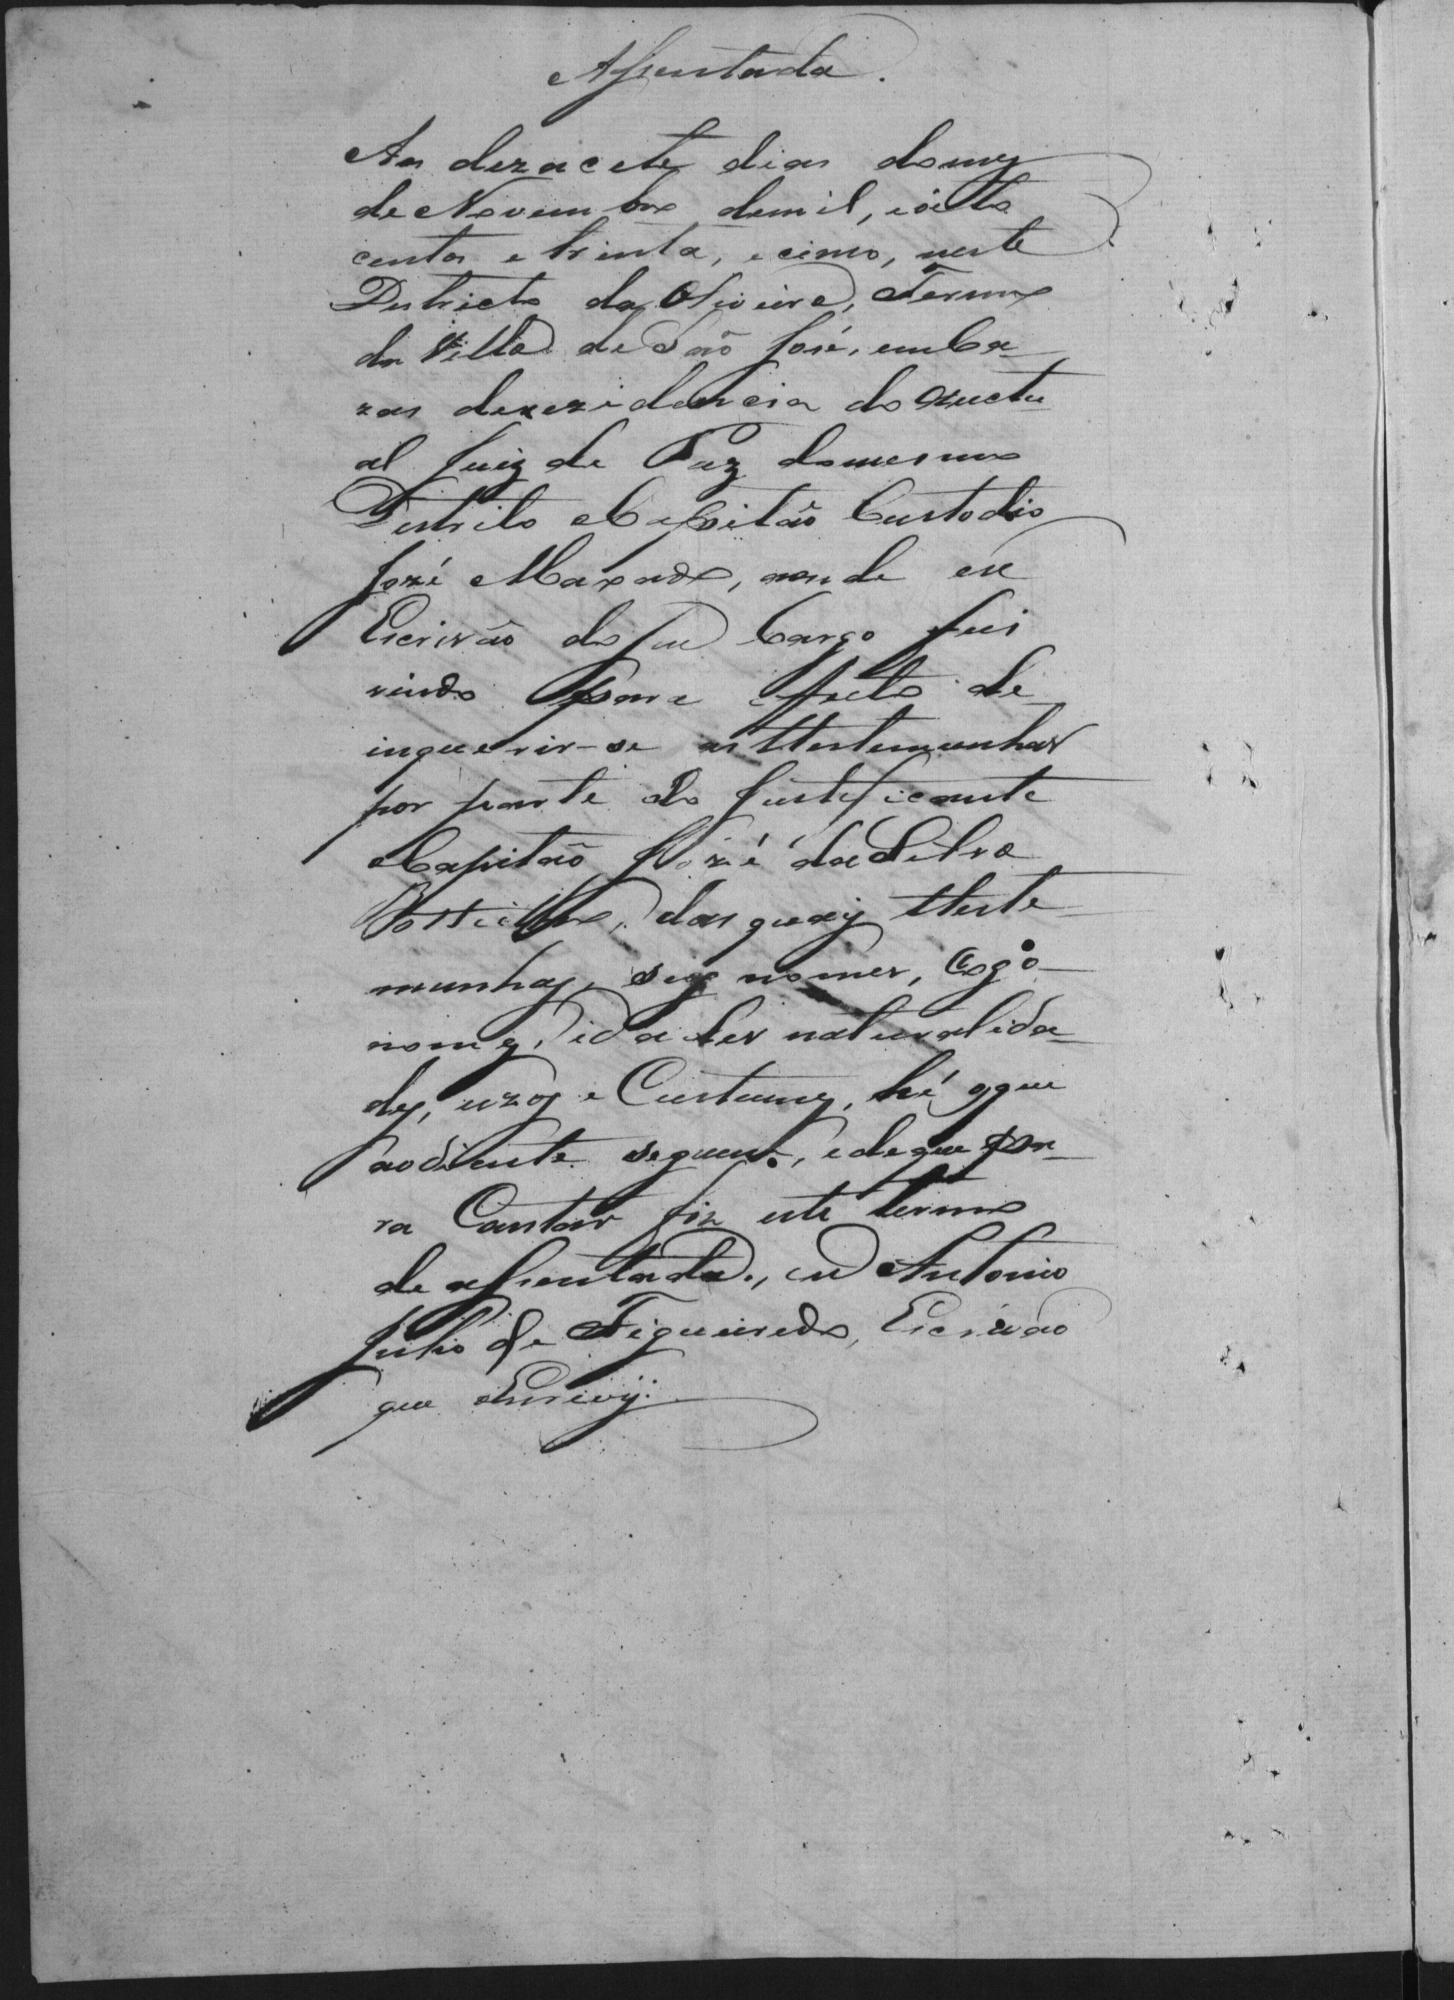 Assentada.
Aos dezacete dias domez
de Novembro demil, eoito
centos e trinta, e cinco, neste
Districto da Oliveira, Termo
da Villa de São José, em Ca_
zas derezidencia do auctu_
al Juiz de Paz domesmo
Destrito o Capitão Custodio
José
Escrivão do seu Cargo fui
vindo para effeito de
inquerir-se as ttestemunhas
por parte do Justificante
o Capitão Jozé da Silva
das quaiz tteste_
munhaz, seuz nomes, Cogo_
nomez, idades naturalida_
dez, uzoz e Custumez, hé oque
aodiente seguem., edeque pa_
ra Constar fiz este termo
de assentada., eu Antonio
Julio de Figueiredo, Escrivão
que Escrivÿ.